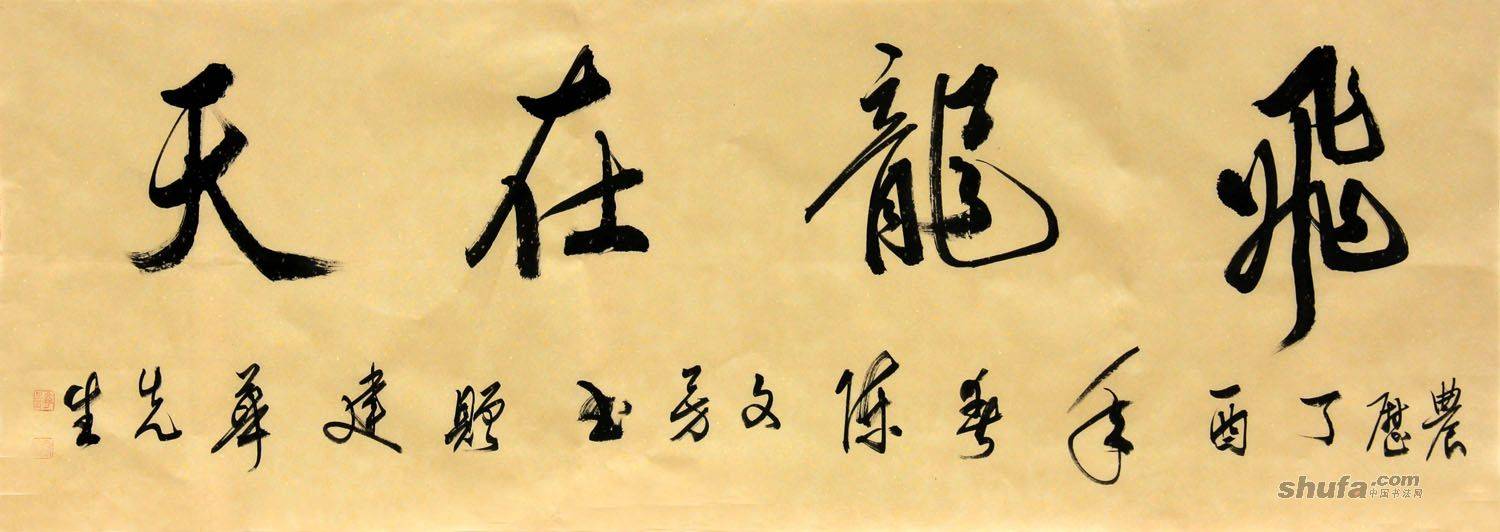 飛龍在天
農歷丁酉年春陳文芳书贈建華先生
shufa.com
中国书法网